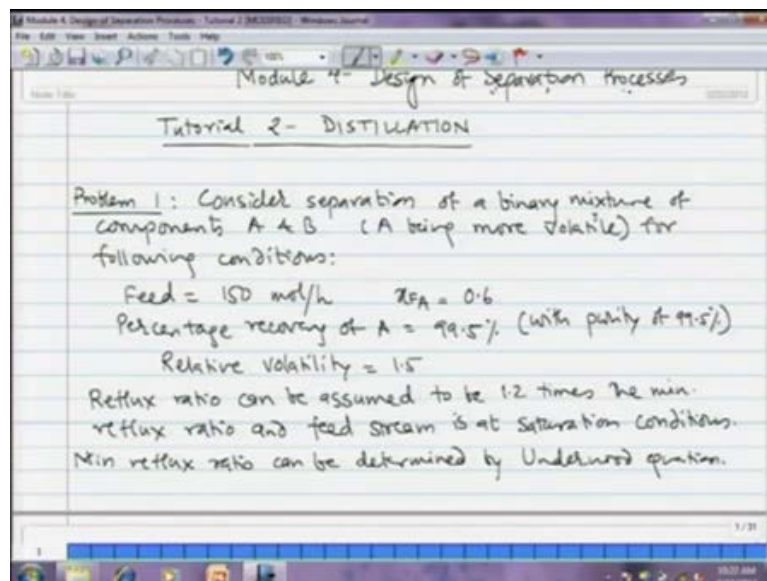 Module 4. Design of Separation Processes - Tutorial 2 [MODIFIED] - Windows Journal
File Edit View Insert Actions Tools Help
Module 4- Design of Separation Processes
Note Title
Tutorial 2- DISTILLATION
Problem 1: Consider separation of a binary mixture of
components A & B (A being more volatile) for
following conditions:
Feed = 150 mol/h xFA = 0.6
Percentage recovery of A = 99.5% (with purity of 99.5%)
Relative volatility = 1.5
Reflux ratio can be assumed to be 1.2 times the min.
reflux ratio and feed stream is at saturation conditions.
Min reflux ratio can be determined by Underwood equation.
1/31
1
10:22 AM